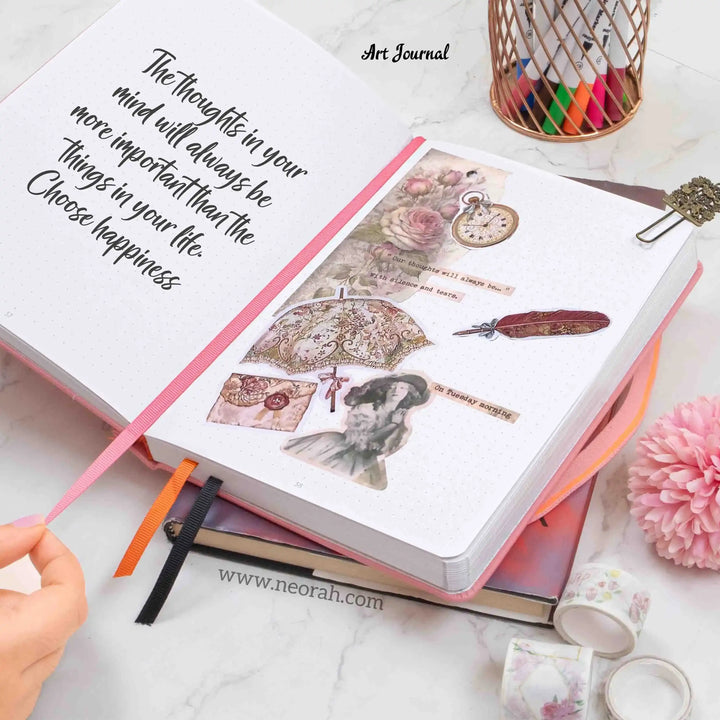 Art Journal
The thoughts in your
mind will always be
more important than the
things in your life.
Choose happiness
"Our thoughts will always be..."
With silence and tears.
On Tuesday morning
58
www.neorah.com